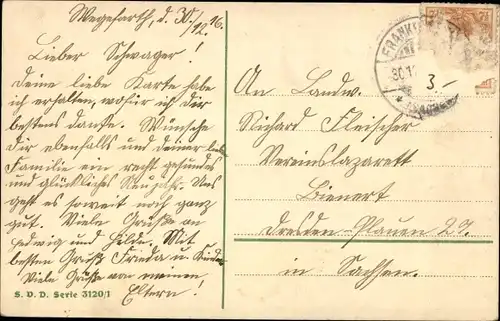 Wegefarth, d. 30/12.16.
Lieber Schwager!
Deine liebe Karte habe
ich erhalten, wofür ich dir
bestens danke. Wünsche
dir ebenfalls und deiner lieb.
Familie ein recht gesundes
und glückliches Neujahr. Uns
geht es soweit noch ganz
gut. Viele Grüße an
Hedwig und Hilde. Mit
besten Gruß Frieda u. Kinder
Viele Grüße von meinen
Eltern!
S. V. D. Serie 3120/1
FRANK
30.12
3.-
An Landw.
Richard Fleischer
Vereinslazarett
Bienert
Dresden-Plauen 27.
in Sachsen.